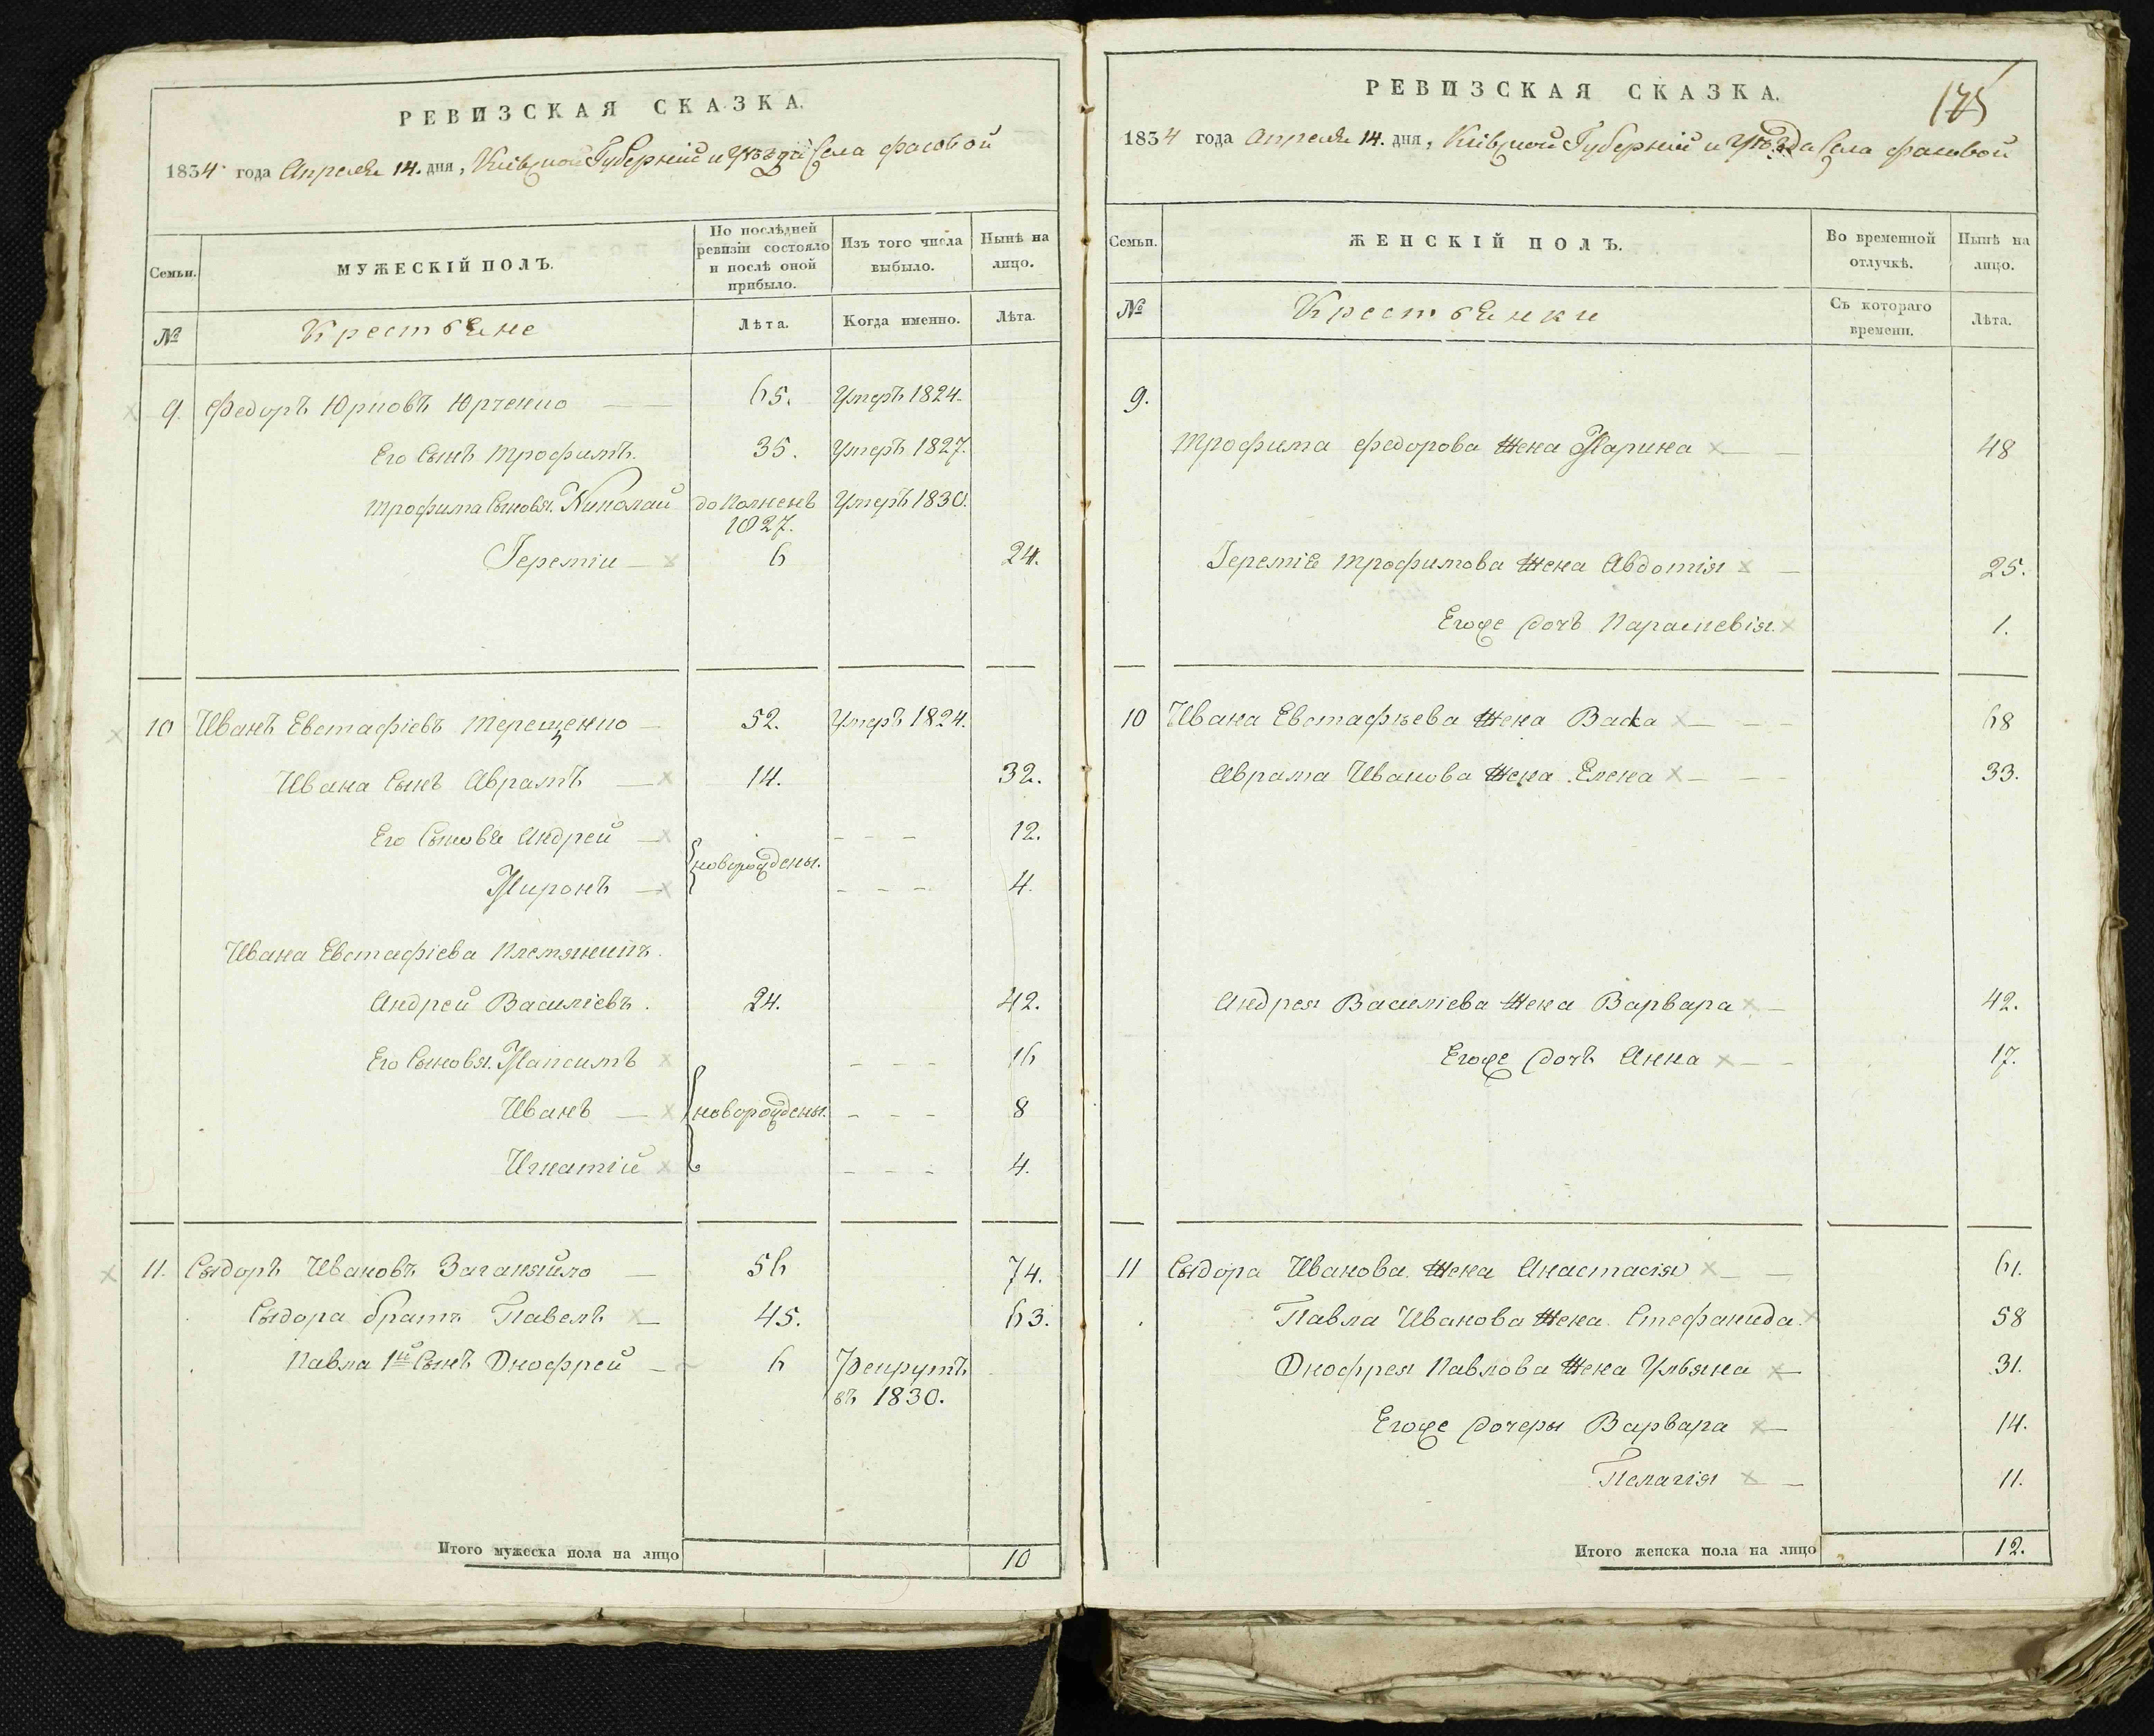 РЕВИЗСКАЯ СКАЗКА.
1834 года Апреля 14. дня, Кіевской Губерніи и Уѣзда Села Фасовой
Семьи.
МУЖЕСКІЙ ПОЛЪ.
По послѣдней ревизіи состояло и послѣ оной прибыло.
Изъ того числа выбыло.
Нынѣ на лицо.
№
Крестьяне
Лѣта.
Когда именно.
Лѣта.
9. Федоръ Юрковъ Юрченко 65. Умеръ 1824.
Его Сынъ Трофимъ. 35. Умеръ 1827.
Трофима Сыновя. Николай до Полненъ 1827. Умеръ 1830.
Іереміи 6 24.
10 Иванъ Евстафіевъ Терещенко 52. Умеръ 1824.
Ивана Сынъ Аврамъ 14. 32.
Его Сыновя Андрей 12.
новорождены.
Миронъ 4.
Ивана Евстафіева Племянникъ.
Андрей Василіевъ. 24. 42.
Его Сыновя. Максимъ 16
Иванъ новорождены. 8
Игнатій 4.
11. Сыдоръ Ивановъ Заганяйло 56 74.
Сыдора братъ Павелъ 45. 63.
Павла 1й Сынъ Онофрей 6 Рекрутъ въ 1830.
Итого мужеска пола на лицо 10
175
РЕВИЗСКАЯ СКАЗКА.
1834 года Апреля 14. дня, Кіевской Губерніи и Уѣзда Села Фасовой
Семьи.
ЖЕНСКІЙ ПОЛЪ.
Во временной отлучкѣ.
Нынѣ на лицо.
№
Крестьянки
Съ котораго времени.
Лѣта.
9.
Трофима Федорова Жена Марина 48
Іеремія Трофимова Жена Авдотія 25.
Егоже дочь Параскевія. 1.
10 Ивана Евстафьева Жена Васка 68
Аврама Иванова Жена Елена 33.
Андрея Василіева Жена Варвара 42.
Егоже дочь Анна 17.
11 Сыдора Иванова Жена Анастасія 61.
Павла Иванова Жена Стефанида. 58
Онофрея Павлова Жена Ульяна 31.
Егоже дочеры Варвара 14.
Пелагія 11.
Итого женска пола на лицо 12.